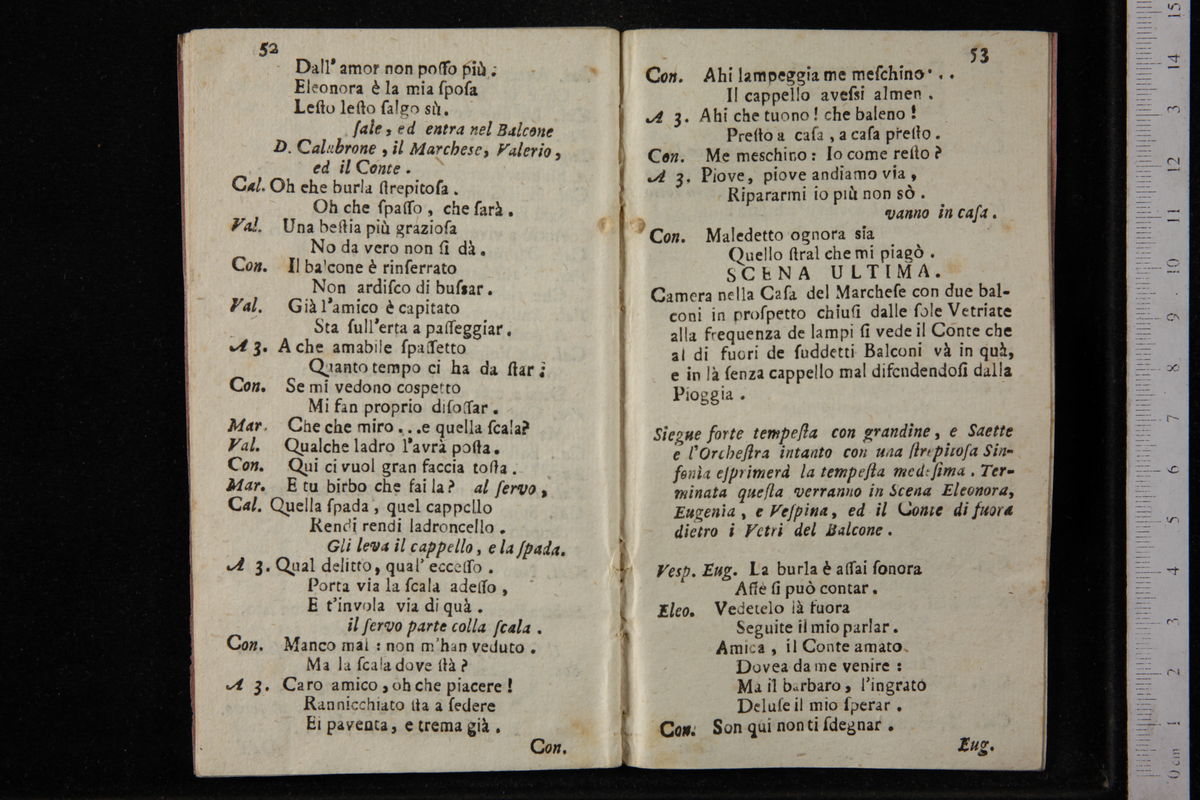 52
Dall' amor non poſſo più :
Eleonora è la mia ſpoſa
Leſto leſto ſalgo sù.
ſale, ed entra nel Balcone
D. Calabrone, il Marchese, Valerio,
ed il Conte.
Cal. Oh che burla ſtrepitoſa.
Oh che ſpaſſo, che ſarà.
Val. Una beſtia più grazioſa
No da vero non ſi dà.
Con. Il balcone è rinſerrato
Non ardiſco di buſsar.
Val. Già l'amico è capitato
Sta ſull'erta a paſſeggiar.
A 3. A che amabile ſpaſſetto
Quanto tempo ci ha da ſtar;
Con. Se mi vedono coſpetto
Mi fan proprio diſoſſar.
Mar. Che che miro...e quella ſcala?
Val. Qualche ladro l'avrà poſta.
Con. Qui ci vuol gran faccia toſta.
Mar. E tu birbo che fai la? al ſervo,
Cal. Quella ſpada, quel cappello
Rendi rendi ladroncello.
Gli leva il cappello, e la ſpada.
A 3. Qual delitto, qual' ecceſſo.
Porta via la ſcala adeſſo,
E t'invola via di quà.
il ſervo parte colla ſcala.
Con. Manco mal : non m'han veduto.
Ma la ſcala dove ſtà?
A 3. Caro amico, oh che piacere!
Rannicchiato ſta a ſedere
Ei paventa, e trema già.
Con.
53
Con. Ahi lampeggia me meſchino...
Il cappello aveſsi almen.
A 3. Ahi che tuono! che baleno!
Preſto a caſa, a caſa preſto.
Con. Me meschino: Io come reſto?
A 3. Piove, piove andiamo via,
Ripararmi io più non sò.
vanno in caſa.
Con. Maledetto ognora sia
Quello ſtral che mi piagò.
SCENA ULTIMA.
Camera nella Caſa del Marcheſe con due bal-
coni in proſpetto chiuſi dalle ſole Vetriate
alla frequenza de lampi ſi vede il Conte che
al di fuori de ſuddetti Balconi và in quà,
e in là ſenza cappello mal difendendoſi dalla
Pioggia.
Siegue forte tempeſta con grandine, e Saette
e l'Orcheſtra intanto con una ſtrepitoſa Sin-
fonìa eſprimerà la tempeſta medeſima. Ter-
minata queſta verranno in Scena Eleonora,
Eugenia, e Veſpina, ed il Conte di fuora
dietro i Vetri del Balcone.
Vesp. Eug. La burla è aſſai ſonora
Affè ſi può contar.
Eleo. Vedetelo là fuora
Seguite il mio parlar.
Amica, il Conte amato
Dovea da me venire :
Ma il barbaro, l'ingrato
Deluſe il mio ſperar.
Con. Son qui non ti ſdegnar.
Eug.
0 cm 1 2 3 4 5 6 7 8 9 10 11 12 13 14 15